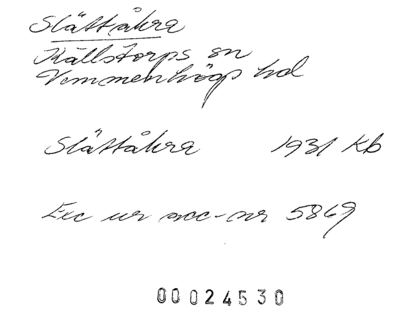 Slättåkra
Källstorps sn
Vemmenhögs hd
Slättåkra 1931 Kb
Exc ur acc-nr 5869
00024530